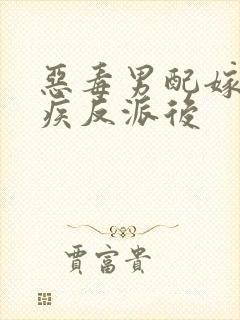 惡毒男配嫁
疾反派後
賈富貴